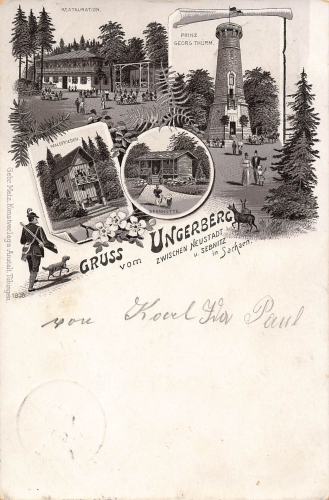 RESTAURATION.
PRINZ
GEORG THURM.
GRUSS vom UNGERBERG
ZWISCHEN NEUSTADT
u. SEBNITZ
in Sachsen.
Gebr. Metz, Kunstverlags-Anstalt, Tübingen.
von Karl Ida Paul